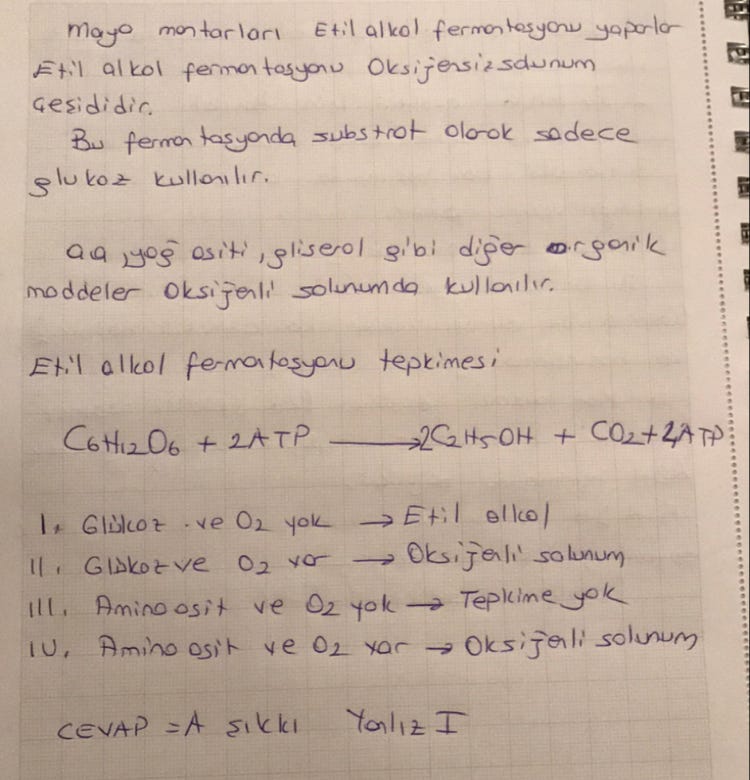 Maya mantarları Etil alkol fermantasyonu yaparlar
Etil alkol fermantasyonu Oksijensiz solunum
çeşididir.
Bu fermantasyonda substrat olarak sadece
glukoz kullanılır.
aa, yağ asiti, gliserol gibi diğer organik
maddeler Oksijenli solunumda kullanılır.
Etil alkol fermantasyonu tepkimesi
C6H12O6 + 2ATP ⟶ 2C2H5OH + CO2 + 4ATP
I. Glikoz ve O2 yok → Etil alkol
II. Glikoz ve O2 var → Oksijenli solunum
III. Amino asit ve O2 yok → Tepkime yok
IV. Amino asit ve O2 var → Oksijenli solunum
CEVAP = A şıkkı Yanlız I